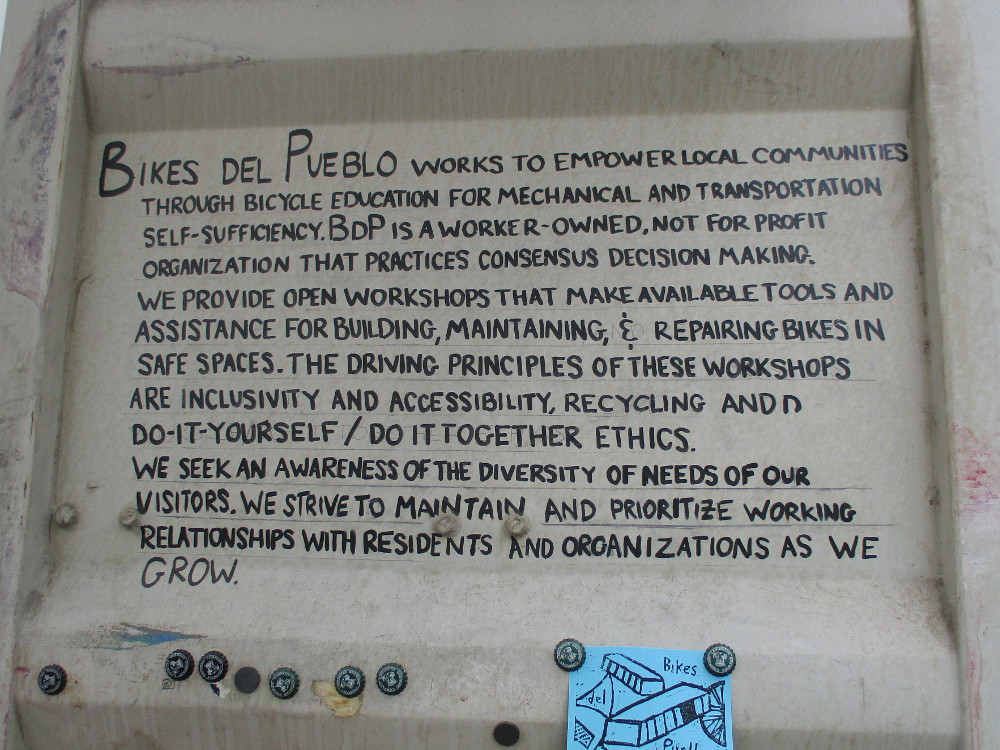 BIKES DEL PUEBLO WORKS TO EMPOWER LOCAL COMMUNITIES
THROUGH BICYCLE EDUCATION FOR MECHANICAL AND TRANSPORTATION
SELF-SUFFICIENCY. BDP IS A WORKER-OWNED, NOT FOR PROFIT
ORGANIZATION THAT PRACTICES CONSENSUS DECISION MAKING.
WE PROVIDE OPEN WORKSHOPS THAT MAKE AVAILABLE TOOLS AND
ASSISTANCE FOR BUILDING, MAINTAINING, & REPAIRING BIKES IN
SAFE SPACES. THE DRIVING PRINCIPLES OF THESE WORKSHOPS
ARE INCLUSIVITY AND ACCESSIBILITY, RECYCLING AND D
DO-IT-YOURSELF / DO IT TOGETHER ETHICS.
WE SEEK AN AWARENESS OF THE DIVERSITY OF NEEDS OF OUR
VISITORS. WE STRIVE TO MAINTAIN AND PRIORITIZE WORKING
RELATIONSHIPS WITH RESIDENTS AND ORGANIZATIONS AS WE
GROW.
Bikes
del